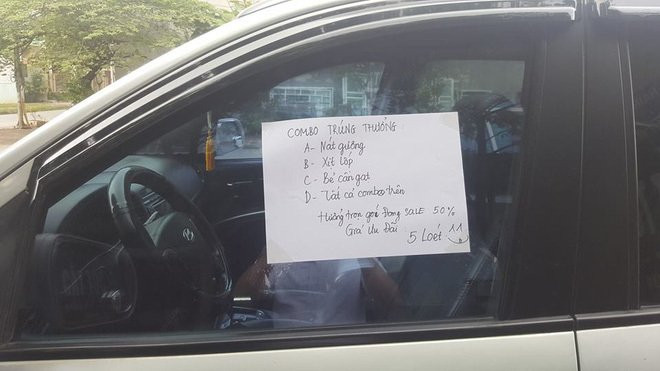 COMBO TRÚNG THƯỞNG
A- Nát gương
B- Xịt lốp
C- Bẻ cần gạt
D- Tất cả combo trên
Hưởng trọn gói đang SALE 50%
Giá Ưu Đãi
5 Loét